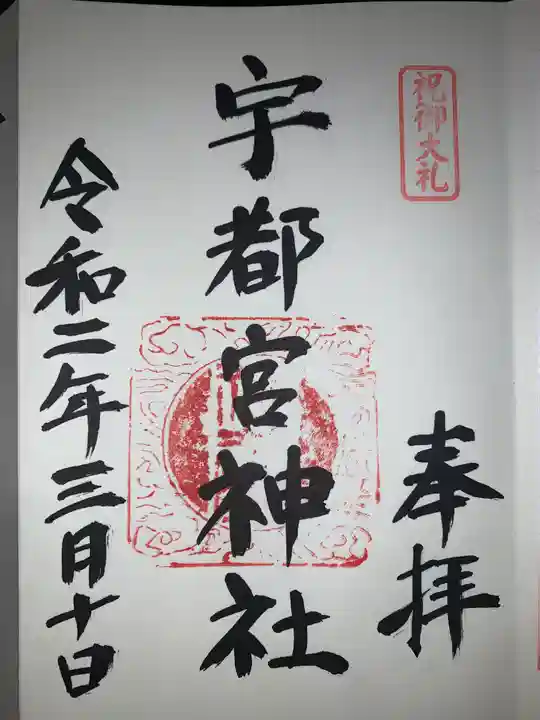 祝御大礼
奉拝
宇都宮神社
令和二年三月十日